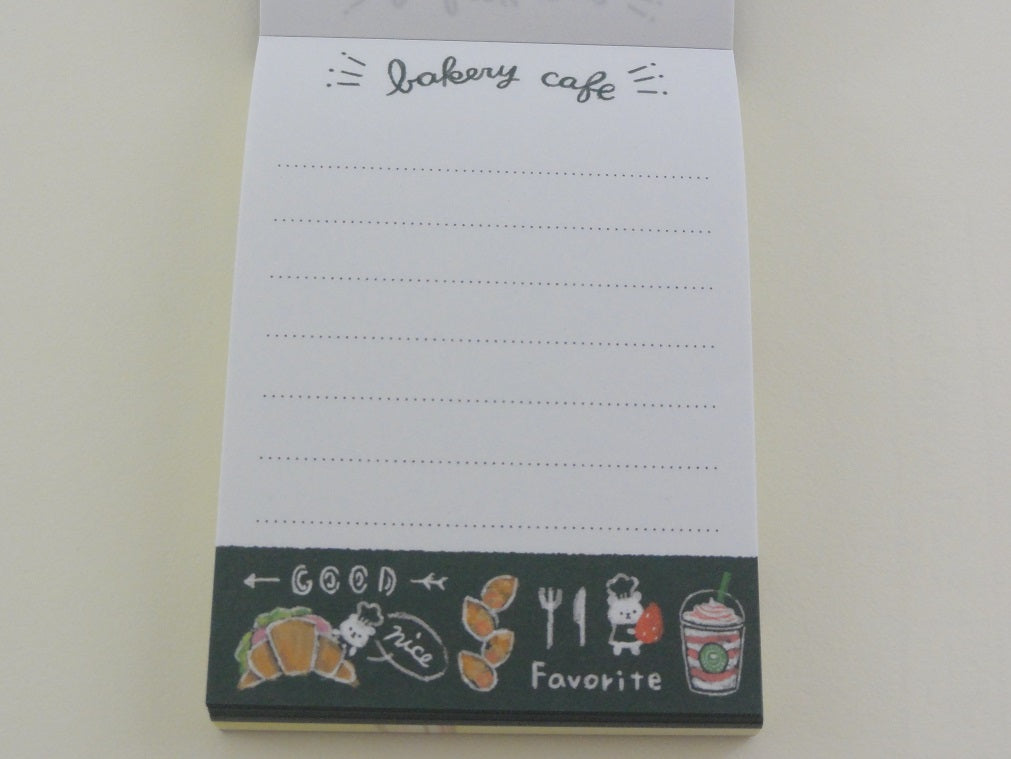 bakery cafe
GOOD
nice
Favorite